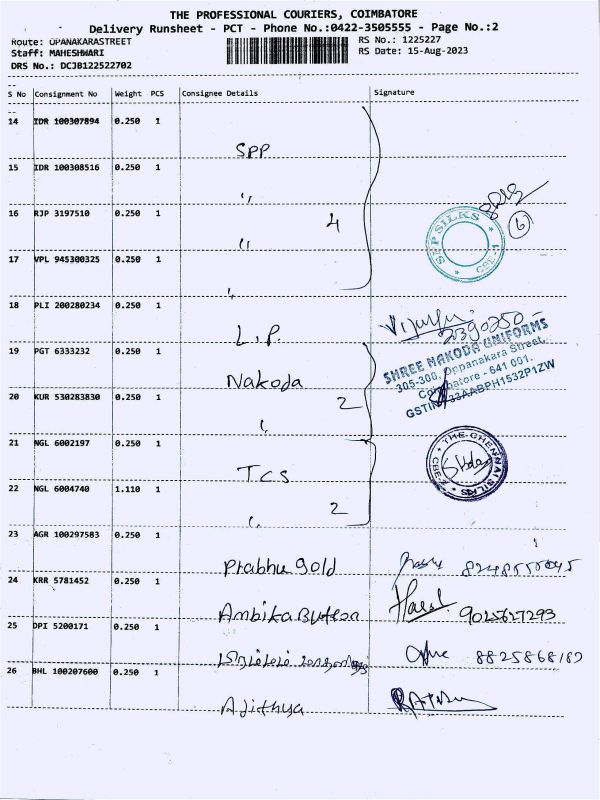 THE PROFESSIONAL COURIERS, COIMBATORE
Delivery Runsheet - PCT - Phone No.:0422-3505555 - Page No.:2
Route: OPANAKARASTREET RS No.: 1225227
Staff: MAHESHWARI RS Date: 15-Aug-2023
DRS No.: DCJB122522702
S No Consignment No Weight PCS Consignee Details Signature
14 IDR 100307894 0.250 1
SPP
15 IDR 100308516 0.250 1
"
16 RJP 3197510 0.250 1 4
"
SPP SILKS CBE-1
6
17 VPL 945300325 0.250 1
"
18 PLI 200280234 0.250 1
L.P. 2390250
19 PGT 6333232 0.250 1
Nakoda
SHREE NAKODA UNIFORMS
305-306, Oppanakara Street,
Coimbatore - 641 001.
GSTIN 33AABPH1532P1ZW
20 KUR 530283830 0.250 1 2
"
21 NGL 6002197 0.250 1
TCS
THE CHENNAI SILKS CBE
22 NGL 6004740 1.110 1 2
"
23 AGR 100297583 0.250 1
Prabhu gold
24 KRR 5781452 0.250 1
Ambika Button 9025627293
25 DPI 5200171 0.250 1
8825868182
26 BHL 100207600 0.250 1
Ajithya